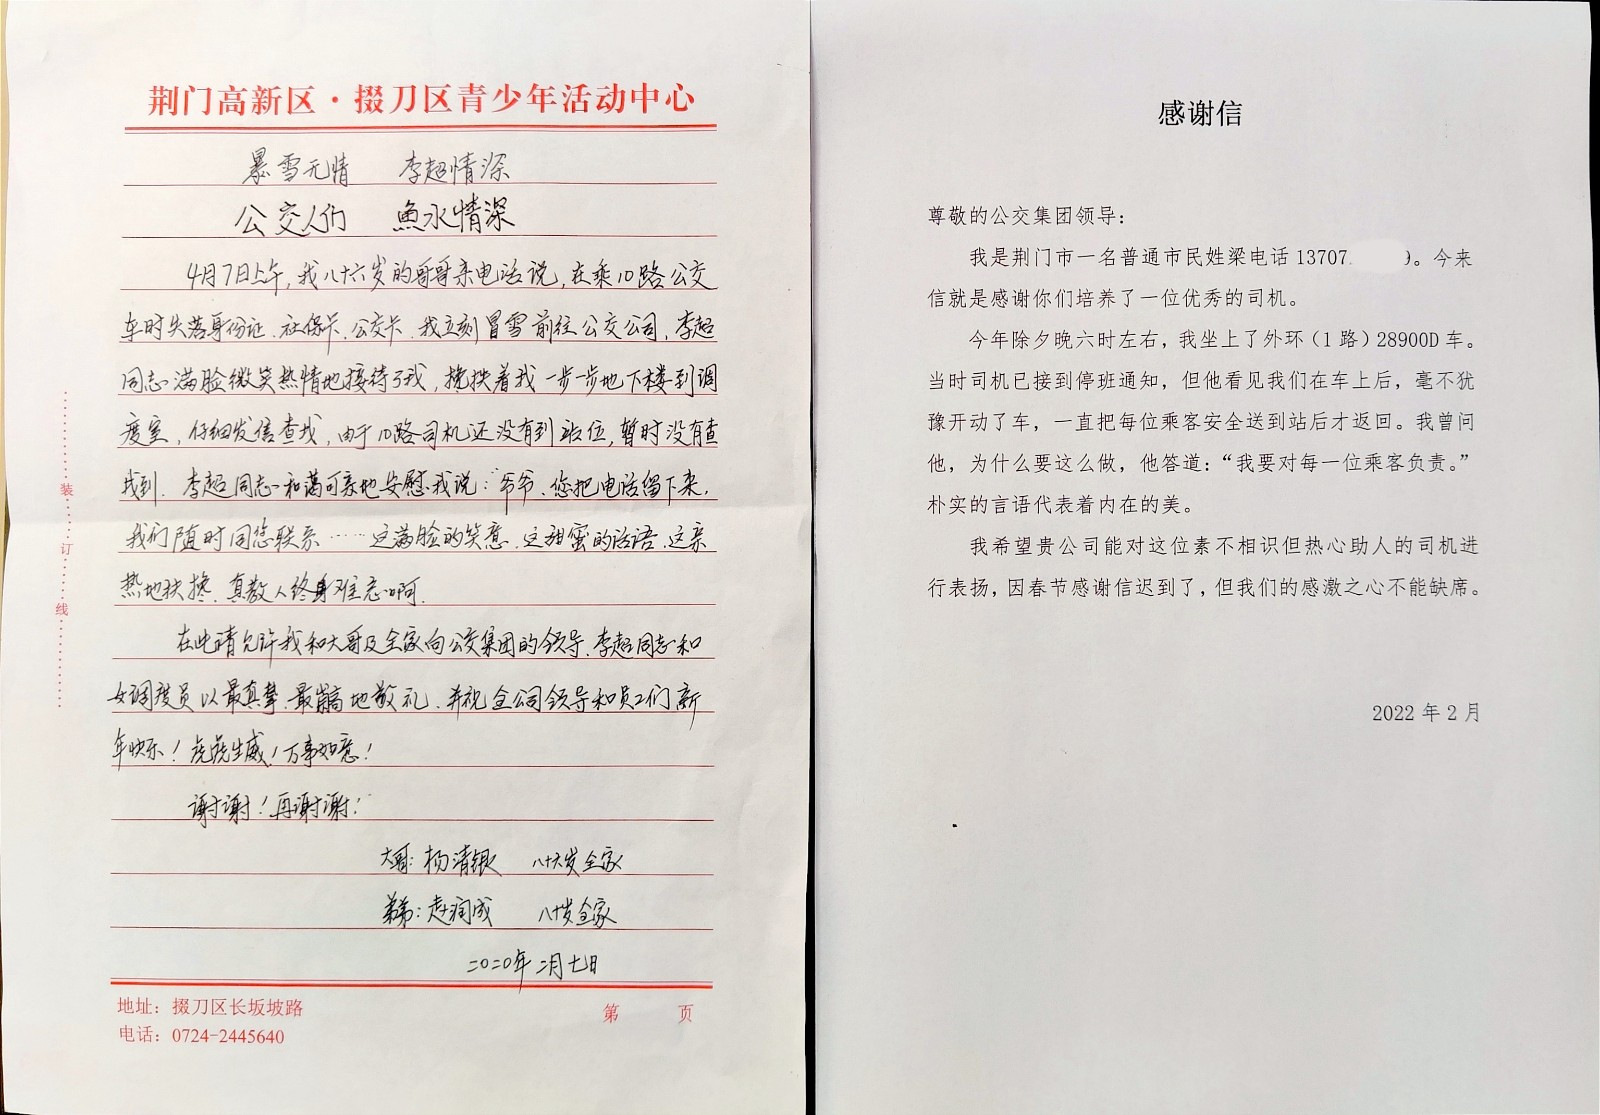 荆门高新区·掇刀区青少年活动中心
暴雪无情 李超情深
公交人们 鱼水情深
4月7日上午,我八十六岁的哥哥来电话说,在乘10路公交
车时失落身份证、社保卡、公交卡、我立刻冒雪前往公交公司,李超
同志满脸微笑热情地接待了我,搀扶着我一步一步地下楼到调
度室,仔细发信查找,由于10路司机还没有到站位,暂时没有查
找到.李超同志和蔼可亲地安慰我说:爷爷、您把电话留下来,
我们随时同您联系……这满脸的笑意、这甜蜜的话语、这亲
热地扶搀、真教人终身难忘啊.
在此请允许我和大哥及全家向公交集团的领导、李超同志和
女调度员以最真挚、最崇高地敬礼、并祝全公司领导和员工们新
年快乐!虎虎生威!万事如意!
谢谢!再谢谢!
大哥:杨清银 八十六岁全家
弟弟:赵润成 八十岁全家
二〇二〇年二月七日
地址:掇刀区长坂坡路
电话:0724-2445640
第 页
装
订
线
感谢信
尊敬的公交集团领导:
我是荆门市一名普通市民姓梁电话13707. 9。今来
信就是感谢你们培养了一位优秀的司机。
今年除夕晚六时左右,我坐上了外环(1路)28900D车。
当时司机已接到停班通知,但他看见我们在车上后,毫不犹
豫开动了车,一直把每位乘客安全送到站后才返回。我曾问
他,为什么要这么做,他答道:“我要对每一位乘客负责。”
朴实的言语代表着内在的美。
我希望贵公司能对这位素不相识但热心助人的司机进
行表扬,因春节感谢信迟到了,但我们的感激之心不能缺席。
2022年2月